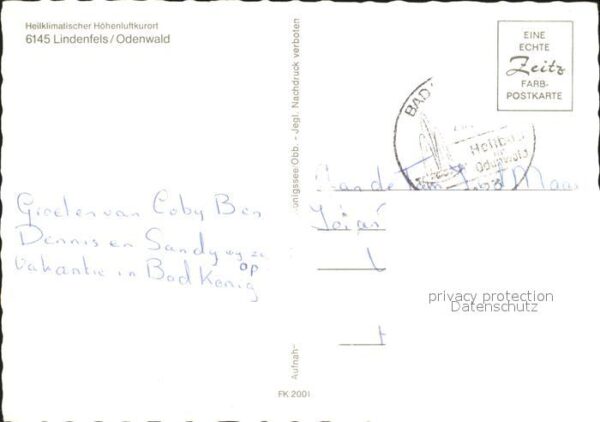 Heilklimatischer Höhenluftkurort
6145 Lindenfels / Odenwald
EINE
ECHTE
Zeitz
FARB-
POSTKARTE
BAD
Heilbad
Odenwald
Groeten van Coby Ben
Dennis en Sandy
op
vakantie in Bad Konig
Aan de Fam
privacy protection
Datenschutz
Aufnah-
önigssee/Obb. - Jegl. Nachdruck verboten
FK 2001